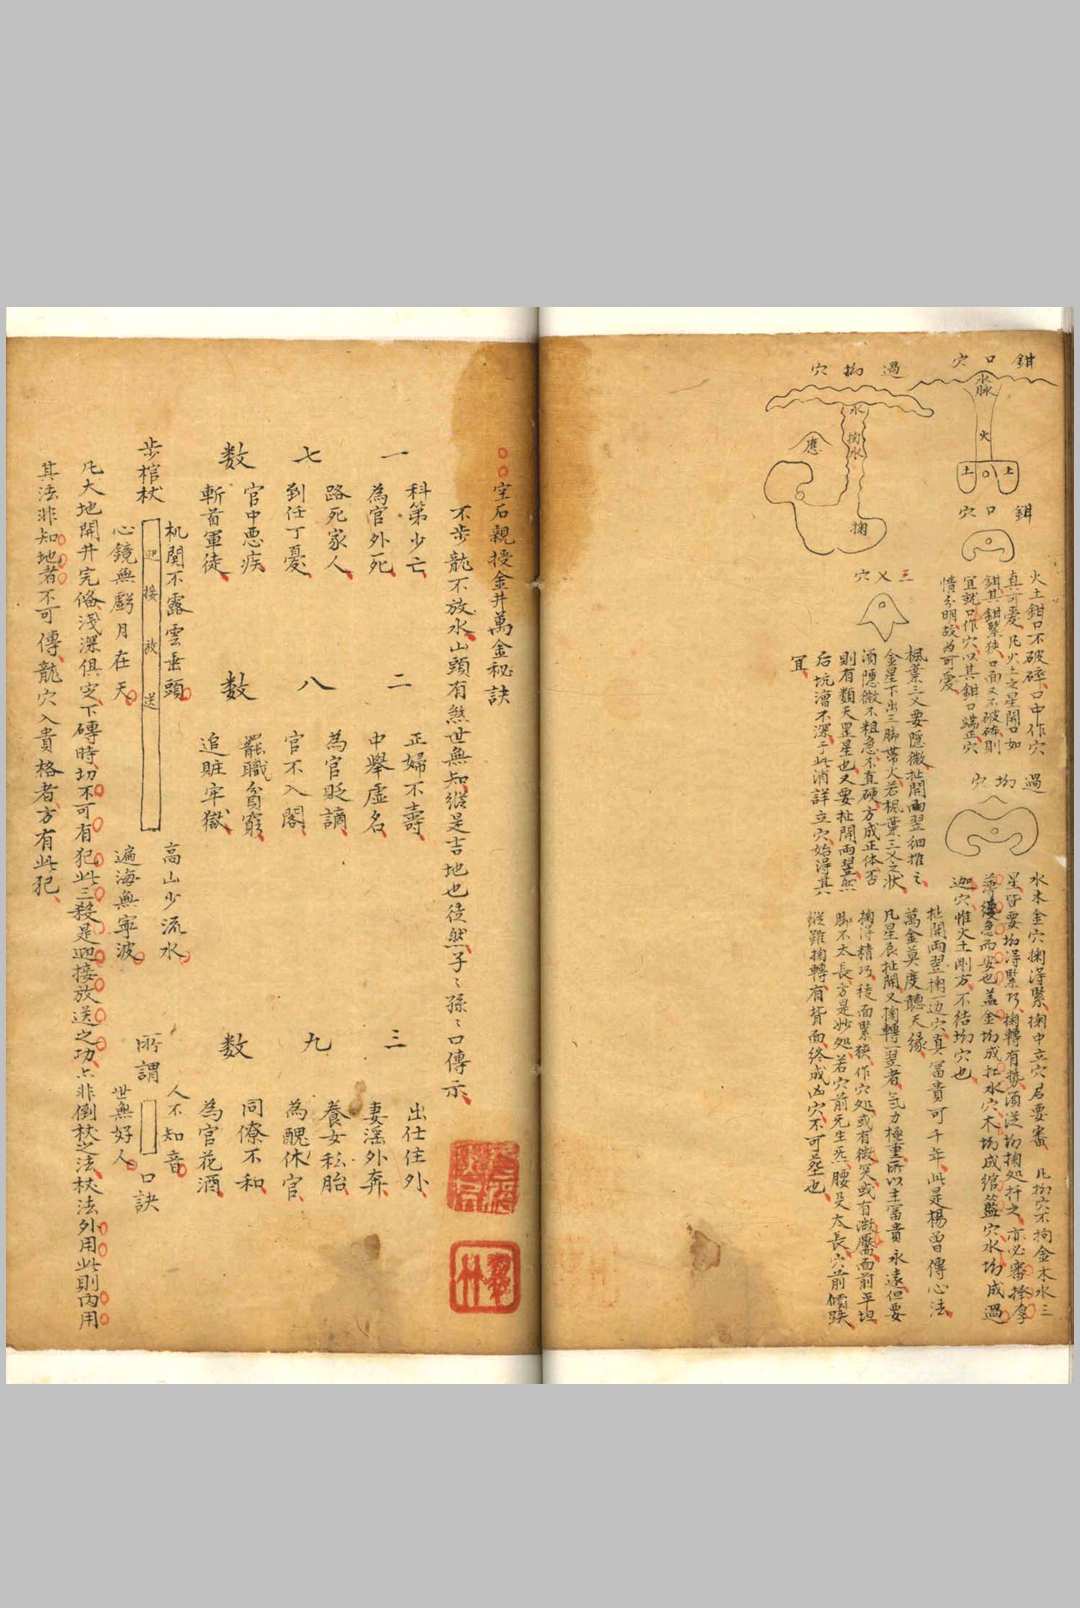 鉗口穴
水脉
火
土
土
鉗口穴
火土鉗口不破碎口中作穴
真可愛凡火土之星開口如
鉗其鉗緊狹口面又不破碎則
宜就口作穴以其鉗口端正穴
情分明故為可愛
過拗穴
水木金穴掬得緊掬中立穴君要審
凡拗穴不拘金木水三
星皆要拗得緊巧掬轉有勢須從拗掬処扦之亦必審擇李
緩急而安也蓋金拗成扛水穴木拗成綰藍穴水拗成過
迦穴惟火土剛方不結拗穴也
過拗穴
水
掬水
應
掬
三义穴
扯開兩翌掬一边穴真冨貴可千年此是楊曾傳心法
萬金莫度聽天緣
凡星辰扯開又掬轉一翌者氣力極重所以主冨貴永遠但要
掬得精巧徒面緊狹作穴処或有微窝或有微靨面前平坦
脚不太長方是妙処若穴前元生
腰又太長穴前傾跌
縦雖掬轉有背面終成凶穴不可
也
楓葉三义要隱微扯開兩翌細推之
金星下出三脚帶火若楓葉三义之狀
須隱微不粗急不直硬方成正体否
則有類天罡星也又要扯開兩翌
后坑濳不深于此消詳立穴始得其
宜
室石親授金井萬金秘訣
不步龍不放水山頭有煞世無知縱是吉地也徒然子〻孫〻口傳示
一七数
科第少亡
為官外死
路死家人
到任丁憂
官中悪疾
斬首軍徒
二八数
正婦不壽
中舉虛名
為官貶謫
官不入閣
罷職貧窮
追賍牢獄
三九数
出仕住外
妻淫外奔
養女私胎
為醜休官
同僚不和
為官花酒
步棺杖
机関不露雲垂頭
迎接放送
心鏡無虧月在天
高山少流水
遍海無寧波
所謂
人不知音
世無好人
口訣
凡大地開井完俻淺深俱定下磚時切不可有犯此三殺是迎接放送之功亦非倒杖之法杖法外用此則内用
其法非知地者不可傳龍穴入貴格者方有此犯